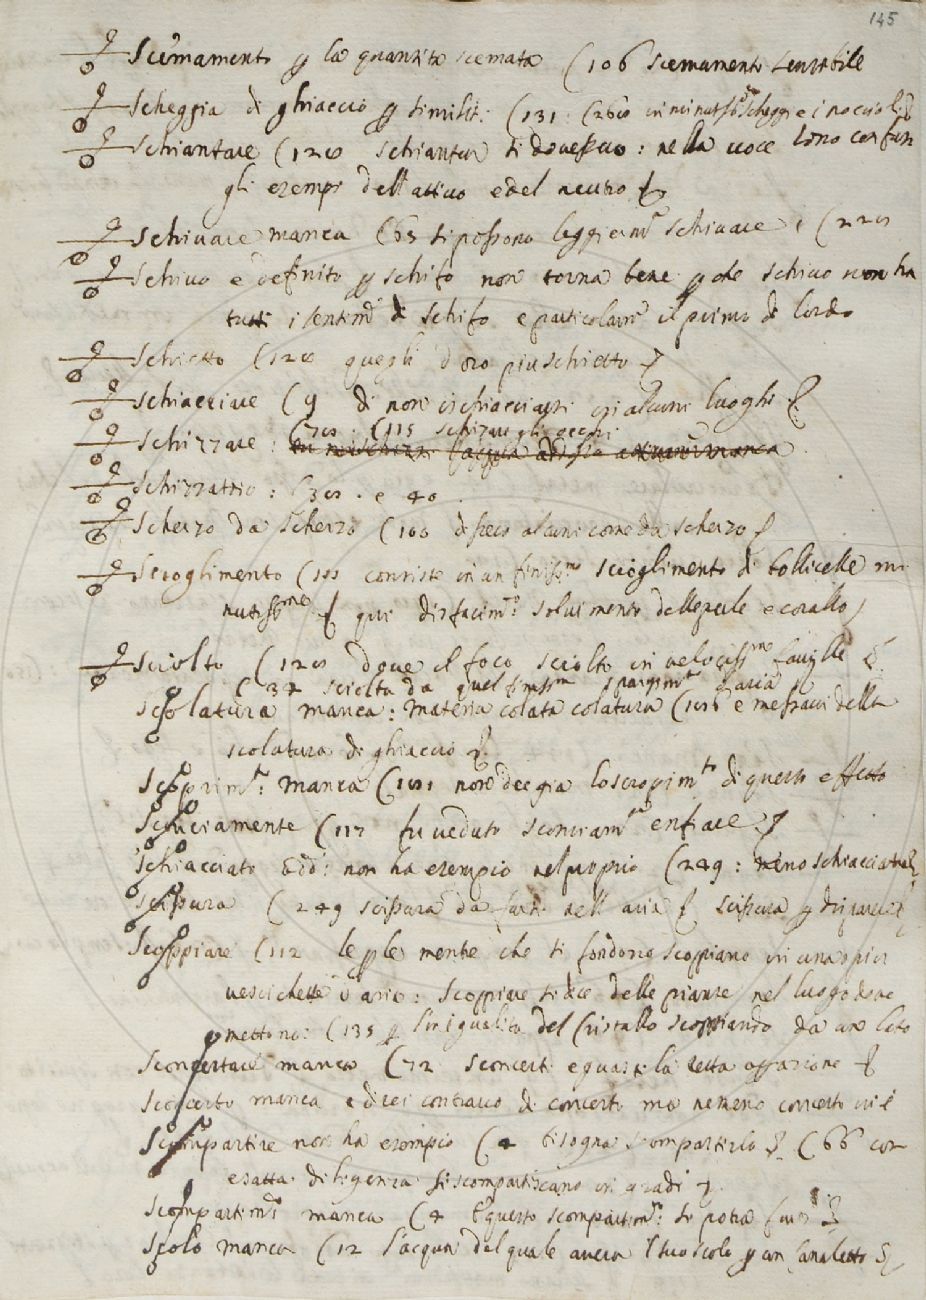 145
Scemamento p la quantità scemata (106 scemamento sensibile
Scheggia di ghiaccio p similit: (131: (260 in minutiss.e scheggie
Schiantare (120 schiantar si dovesse: nella voce sono confusi
gli esempi dell'attivo e del neutro
Schivare manca (65 si possono leggierm.te schivare (220
Schivo è definito p schifo non torna bene p che schivo non ha
tutti i sentim.ti di schifo e particolarm.te il primo di lordo
Schietto (120 quegli d'oro più schietto
Schiacciare (9 di non ischiacciarsi in alcuni luoghi
(70: (115 schizzare gli occhi
Schizzare: manca
Schizzattio: (30. e 40.
Scherzo da scherzo (100 alcuni come da scherzo
Scioglimento (100 consiste in un finiss.mo scioglimento di bollicelle mi
nutiss.me qui disfacim.to solvimento delle perle e corallo
Sciolto (120 dove il foco sciolto in velociss.me faville
(34 sciolta da quel finiss.mo spargim.to d'aria
Scolatura manca: materia colata colatura (101 e messavi della
scolatura di ghiaccio
Scoprim.to manca (101 non dee già lo scoprim.to di questo effetto
Sconciamente (117 fu veduto sconciam.te enfiare
Schiacciato Add: non ha esempio nel proprio (249: meno schiacciata
Scissura (249 scissura da farsi nell'aria scissura p
Scoppiare (112 le p le mente che si fondono scoppiano in una o più
vescichette d'aria: scoppiare si dice delle piante nel luogo dove
mettono: (135 p l'inigualità del cristallo scoppiando da un lato
Sconcertare manca (72 sconcerti e guasti la retta operazione
Sconcerto manca e direi contrario di concerto ma nemeno concerto vi è
Scompartire non ha esempio (4 bisogna scompartirlo (66 con
esatta diligenza si scompartiscano in gradi
Scompartim.to manca (4 E questo scompartim.to si potrà fare
Scolo manca (12 l'acqua dal quale aveva il suo scolo p un canaletto